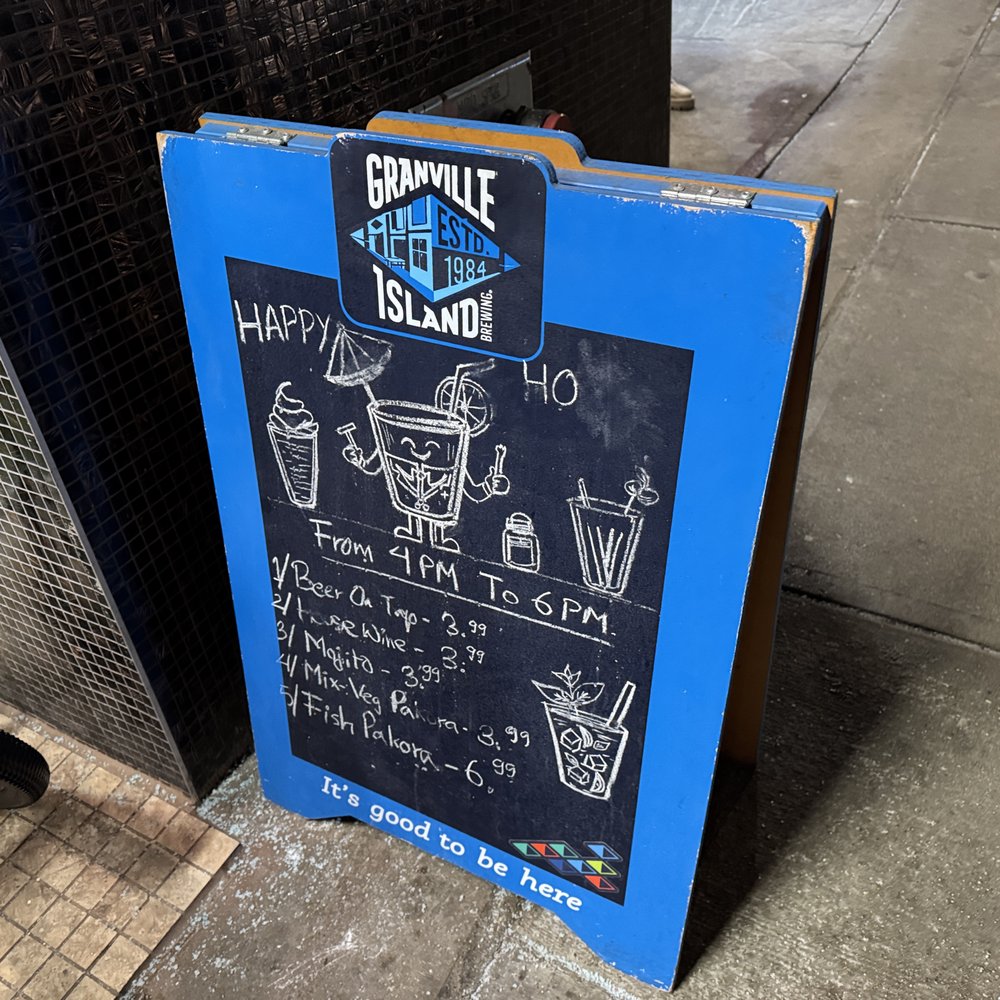 GRANVILLE
ESTD.
1984
ISLAND
BREWING.
HAPPY HO
From 4PM To 6PM.
1/ Beer On Tap - 3.99
2/ House Wine - 3.99
3/ Mojito - 3.99
4/ Mix-Veg Pakora - 3.99
5/ Fish Pakora - 6.99
It's good to be here